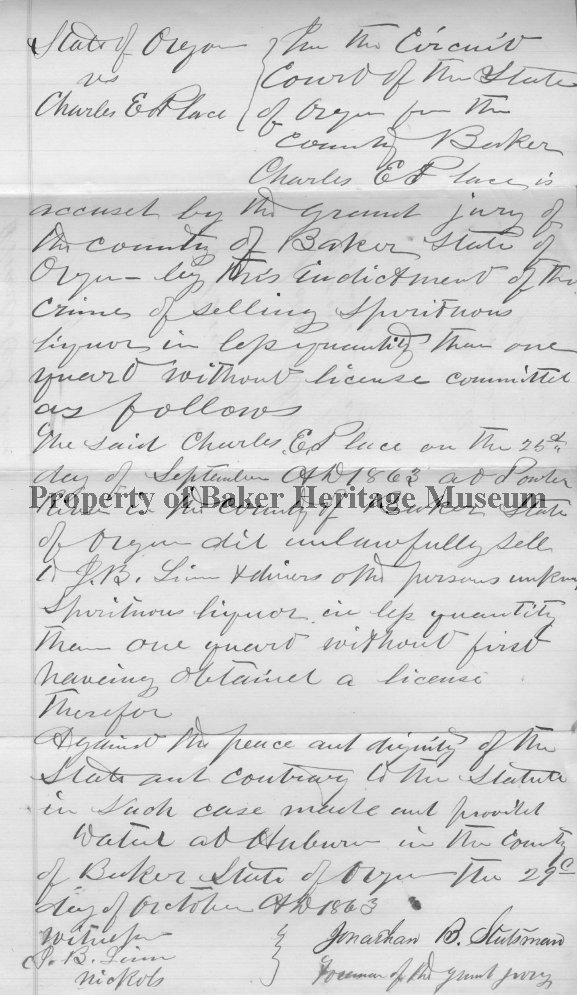 State of Oregon
vs
Charles E Place
In the Circuit
Court of the State
of Oregon for the
County Baker
Charles E Place is
accused by the grand jury of
the county of Baker State of
Oregon by this indictment of the
crime of selling Spirituous
liquor in less quantity than one
quart without license committed
as follows
The said Charles E Place on the 25th
day of September AD 1863 at Powder
Property of Baker Heritage Museum
River in the County of Baker State
of Oregon did unlawfully sell
to J. B. Linn & divers other persons
Spirituous liquor in less quantity
than one quart without first
haveing obtained a license
therefor
Against the peace and dignity of the
State and contrary to the Statute
in such case made and provided
Dated at Auburn in the County
of Baker State of Oregon the 29
day of October AD 1863
witnesses
J. B. Linn
Nickols
Jonathan B. Stutsman
Foreman of the grand jury